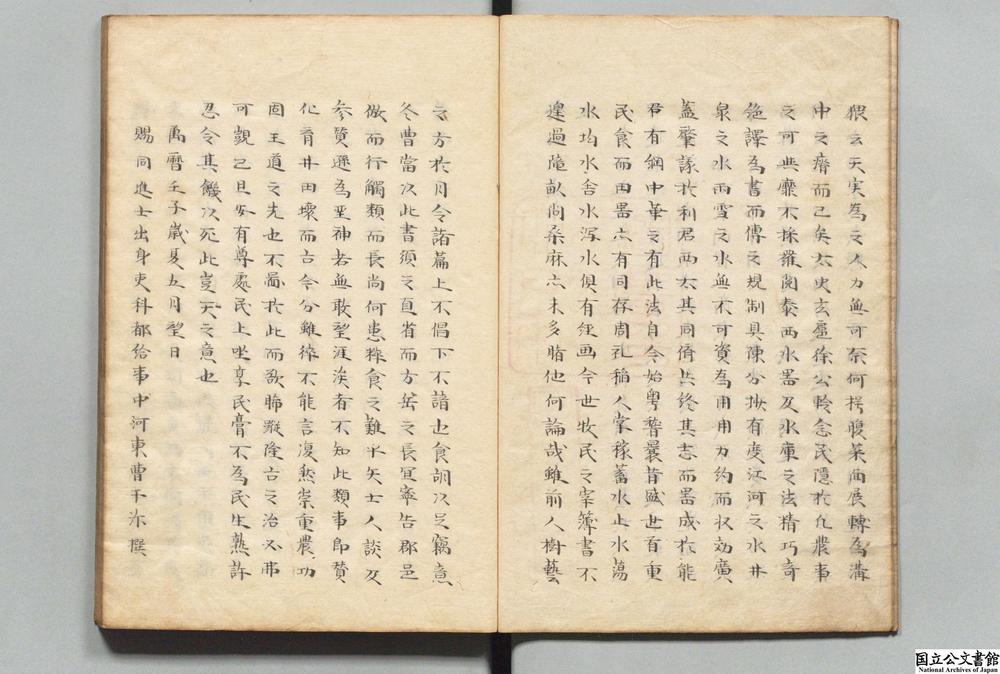 猥云天實為之人力無可奈何枵腹菜面展轉為溝
中之瘠而已矣太史玄扈徐公軫念民隱於凡農事
之可興靡不採羅閱泰西水器及水庫之法精巧奇
絶譯為書而傳之規制具陳分抄有度江河之水井
泉之水雨雪之水無不可資為用用力約而収効廣
蓋肇議於利君西太其同儕共終其志而器成於能
君有綱中華之有此法自今始粤稽曩昔盛世首重
民食而田器亦有同存周礼稲人掌稼蓄水止水蕩
水均水舎水瀉水俱有經画今世牧民之宰簿書不
遑過隴畝尚桑麻亦未多睹他何論哉雖前人樹藝
之方於月令諸篇上不倡下不諳也食胡以足竊意
冬曹當以此書須之直省而方岳之長宜寧告郡邑
倣而行觸類而長尚何患稼食之難乎矣士人談及
参賛遜為聖神若無敢望涯涘者不知此類事即賛
化育井田壞而古今分雖猝不能言復然崇重農功
固王道之先也不啚於此而欲睎蹤隆古之治又弗
可覬已且安有尊處民上坐享民膏不為民生熟許
忍令其饑以死此豈天之意也
萬曆壬子歳夏五月望日
賜同進士出身吏科都給事中河東曹于汴撰
国立公文書館
National Archives of Japan